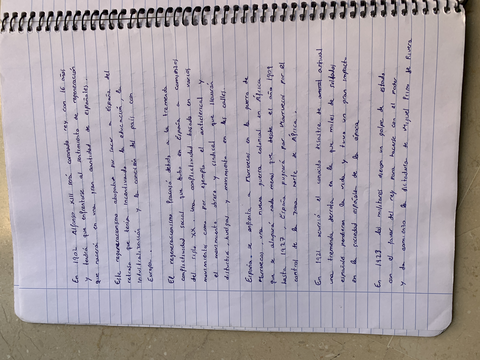 En 1902 Alfonso XIII será coronado rey con 16 años
y tendrá que enfrentarse al sentimiento de regeneración
que renació en una gran cantidad de españoles...
Este regeneracionismo abogaba por sacar a España del
retraso que tenía incentivando la educación, la
industrialización y la conexión del país con
Europa...
El regeneracionismo fracasó debido a la tremenda
conflictividad social que hubo en España a comienzos
del siglo XX. Una conflictividad basada en varios
movimientos como por ejemplo el anticlerical y
el movimiento obrero y sindical que llevarán
disturbios, huelgas y movimientos en las calles.
España se enfrenta Marruecos en la guerra de
Marruecos, una nueva guerra colonial en África
que se alargará nada menos que desde el año 1909
hasta 1927. España pugnará por Marruecos por el
control de la zona norte de África.
En 1921 ocurrió el conocido desastre de Annual
una tremenda derrota en la que miles de soldados
españoles perdieron la vida y tuvo un gran impacto
en la sociedad española de la época.
En 1923 los militares dieron un golpe de estado
con el favor del rey para hacerse con el poder
y da comienzo la dictadura de Miguel Primo de Rivera